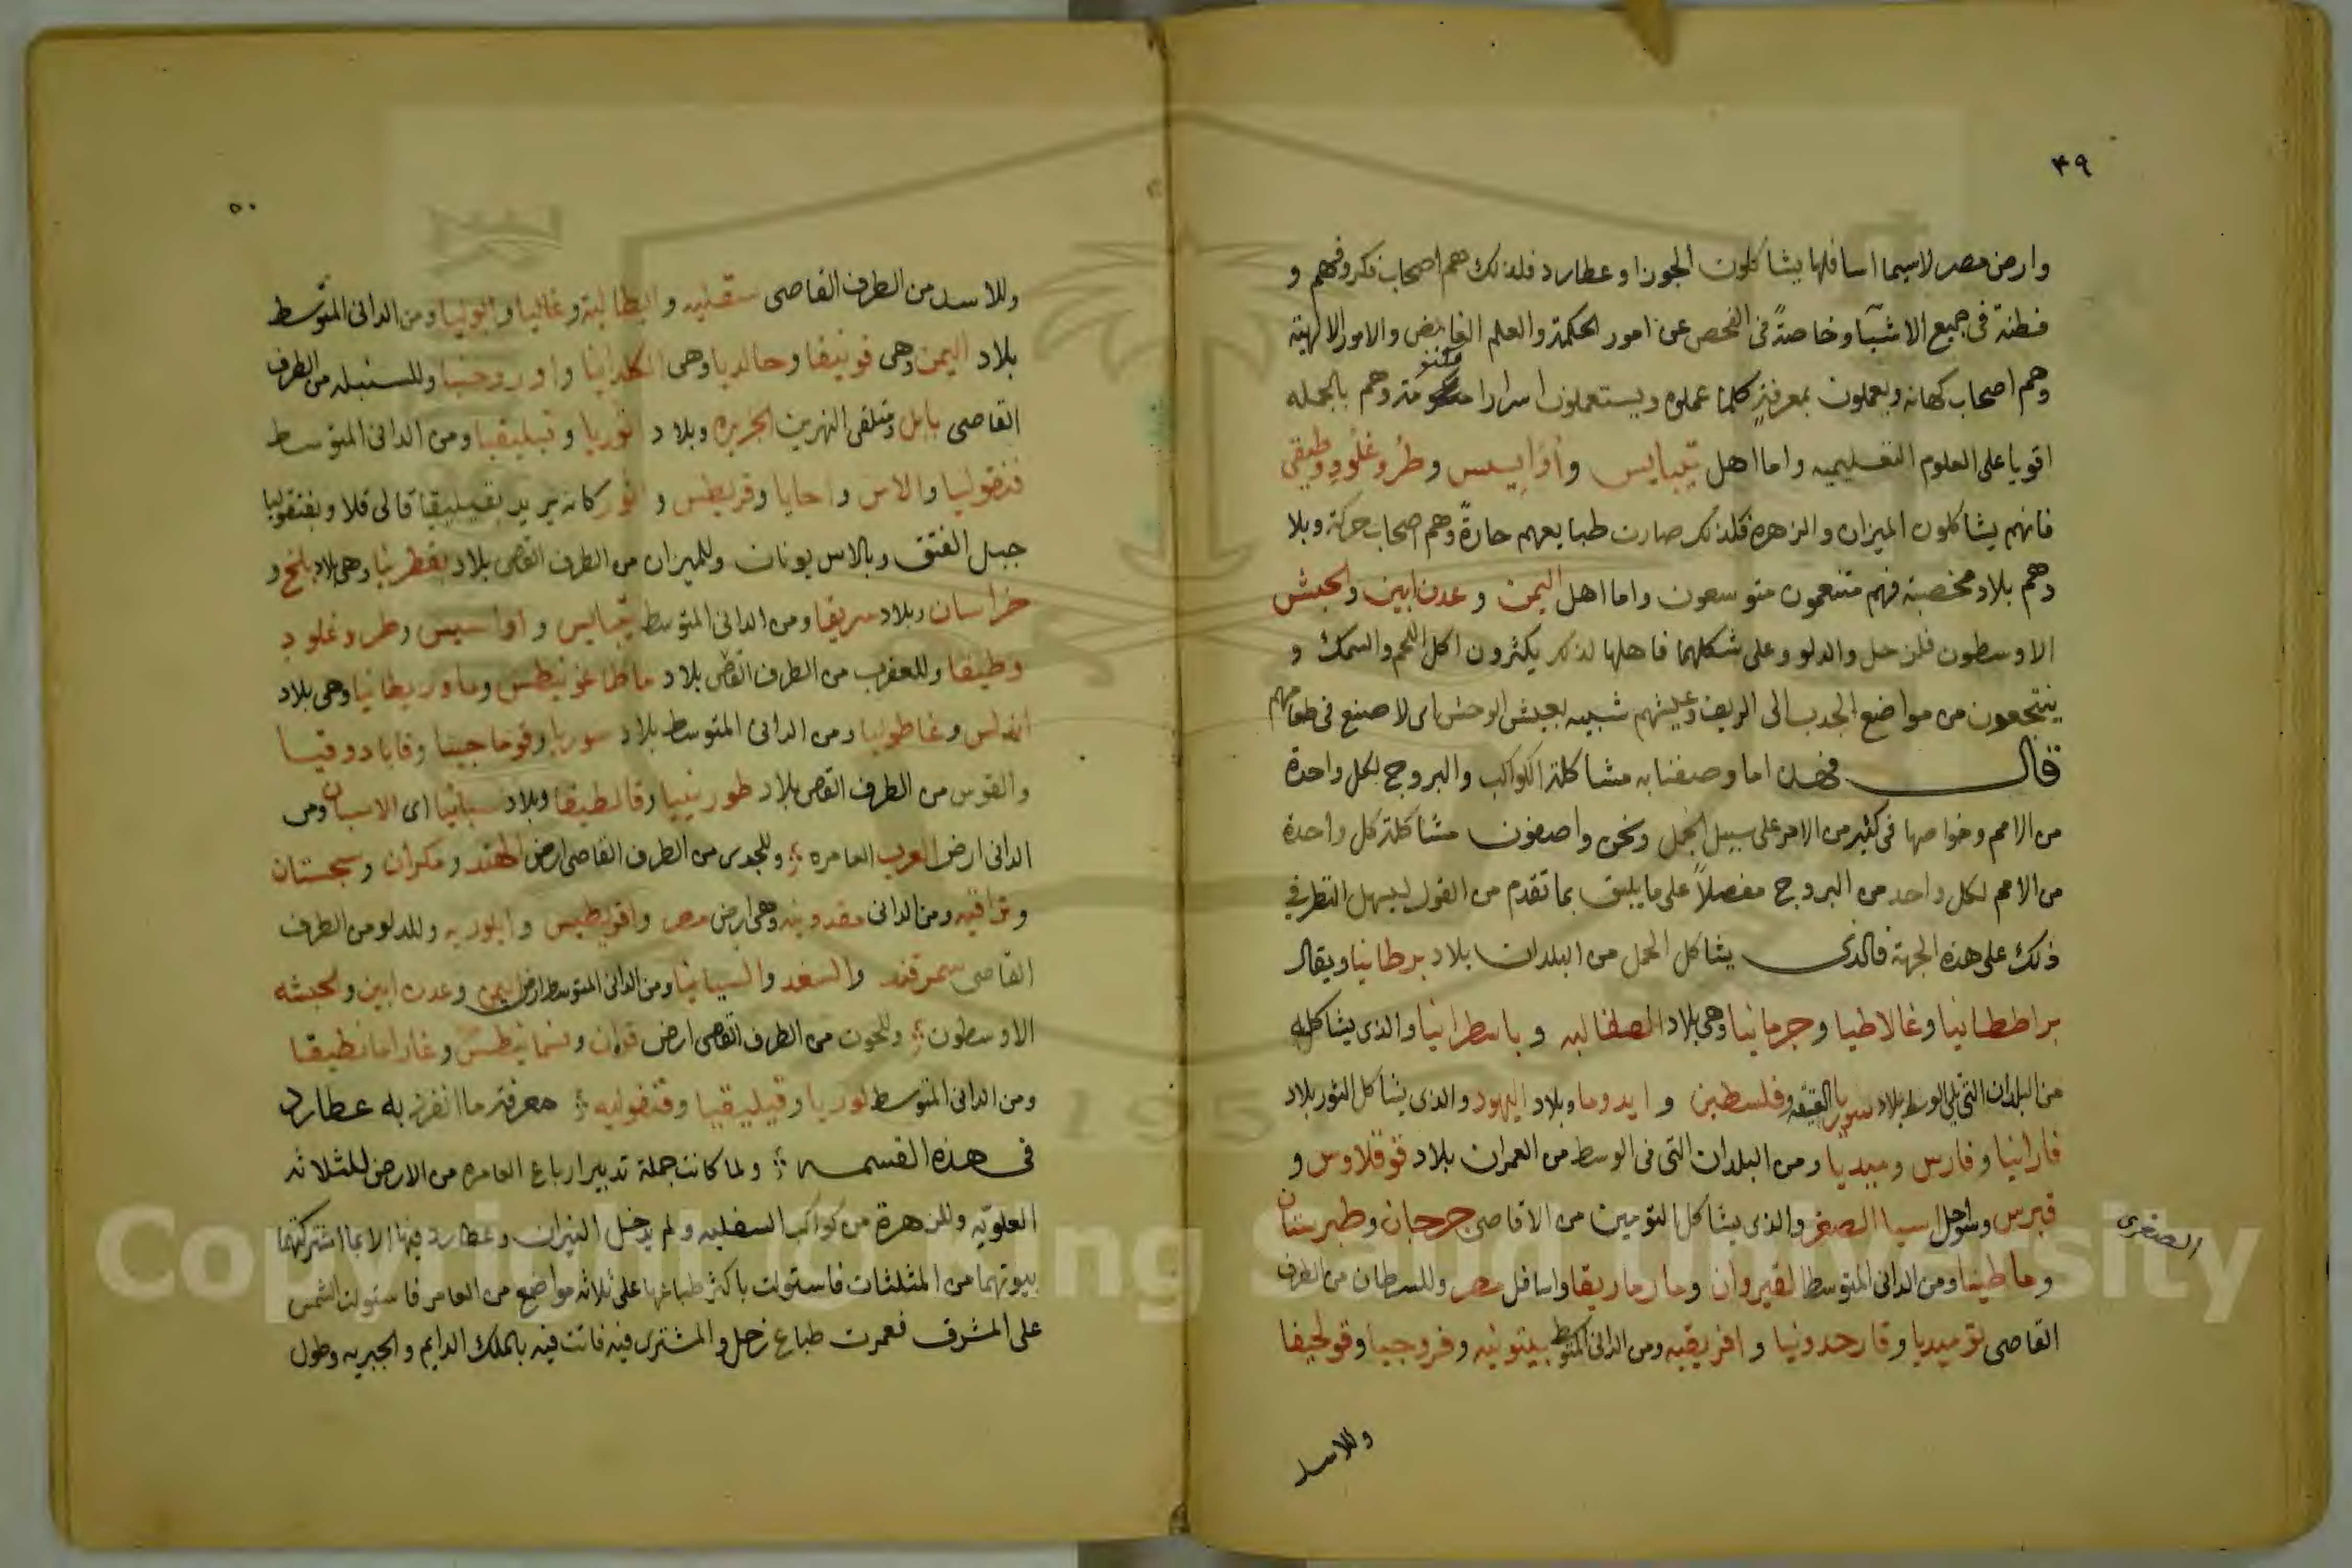 ٤٩
وارض مصر لاسيما اسافلها يشاكلون الجوزا وعطارد فلذلك هم اصحاب فكر وفهم و
فطنة في جميع الاشيآ وخاصةً في الفحص عن امور الحكمة والعلم الغامض والامور الالهية
وهم اصحاب كهانه ويعملون بمعرفةٍ كلما عملوه ويستعملون اسرارا مكتومة وهم بالجمله
اقويا على العلوم التعليميه واما اهل تيبايس واوايسس وطروغلود وطيقى
فانهم يشاكلون الميزان والزهرة فلذلك صارت طبايعهم حارةً وهم اصحاب حركة وبلا
دهم بلاد مخصبة فهم متنعمون متوسعون واما اهل اليمن وعدن ابين والحبش
الاوسطون فلزحل والدلو وعلى شكلهما فاهلها لذلك يكثرون اكل اللحم والسمك و
ينتجعون من مواضع الجدب الى الريف وعيشهم شبيه بعيش الوحش اى لا صنيع في طعامهم
قال فهذا ما وصفنا به مشاكلة الكواكب والبروج لكل واحدة
من الامم وخواصها في كثير من الامر على سبيل الجمل ونحن واصفون مشاكلة كل واحدة
من الامم لكل واحد من البروج مفصلاً على ما يليق بما تقدم من القول ليسهل النظر في
ذلك على هذه الجهة فالذى يشاكل الحمل من البلدان بلاد برطانيا ويقال
براططانيا وغالاطيا وجرمانيا وهى بلاد الصقالبه وباسطرانيا والذى يشاكله
من البلدان التى يلى الوسط بلاد سوريا وفلسطين وايدوما وبلاد اليهود والذى يشاكل الثور بلاد
فارانيا وفارس وميديا ومن البلدان التى في الوسط من العمران بلاد قوقلاوس و
قبرس وسواحل اسيا الصغر والذى يشاكل التومين من الاقاصى جرجان وطبرستان
الصغرى
وماطينا ومن الدانى المتوسط القيروان ومارماريقا واسافل مصر وللسرطان من الطرف
القاصى نوميديا وقارحدونيا وافريقيه ومن الدانى المتوسط بيتونيه وفروجيا وقولجيقا
وللاسد
٥٠
وللاسد من الطرف القاصى سقليه وايطاليه وغاليا وابوليا ومن الدانى المتوسط
بلاد اليمن وهى فونيقا وحالديا وهى الكلدانيا واوروحنيا وللسنبله من الطرف
القاصى بابل وملتقى النهرين الجزيره وبلاد اثوريا وتيليقيا ومن الدانى المتوسط
فنقوليا والاس واحايا وقريطس و اثور كانه يريد بقيليقيا قالى قلا وبفنقوليا
جبل الفتق وبالاس يونان وللميزان من الطرف القاصى بلاد بقطريا وهى بلاد بلخ و
خراسان وبلاد سريقا ومن الدانى المتوسط تيبايس واواسيس وطروغلود
وطيفا وللعقرب من الطرف القاصى بلاد ماطاغونيطس وماوريطانيا وهى بلاد
اندلس وغاطوليا ومن الدانى المتوسط بلاد سوريا وقوماجينا وقابادوقيا
والقوس من الطرف القاصى بلاد طورينيا وقالطيقا وبلاد سبانيا اى الاسبان ومن
الدانى ارض العرب العامره وللجدى من الطرف القاصى ارض الهند ومكران وسجستان
وتراقيه ومن الدانى مقدونيه وهى ارض مصر واقويطيس وايلوريه وللدلو من الطرف
القاصى سمرقند والسغد والسيانيا ومن الدانى المتوسط ارض اليمن وعدن ابين والحبشه
الاوسطون وللحوت من الطرف القاصى ارض فزان ونسمانيطس وغارامانطيقا
ومن الدانى المتوسط لوريا وقيليقيا وقنفوليه معرفة ما انفرد به عطارد
في هذه القسمه ولما كانت جملة تدبير ارباع العامره من الارض للثلاثه
العلويه وللزهرة من كواكب السفليه ولم يدخل النيران وعطارد فيها الا بما اشتركتها
بيوتهما من المثلثات فاستولت باكثر طباعها على ثلاثه مواضع من العامر فاستولت الشمس
على المشرق فعمرت طباع زحل والمشترى فيه فاتت فيه بالملك الدايم والجبريه وطول